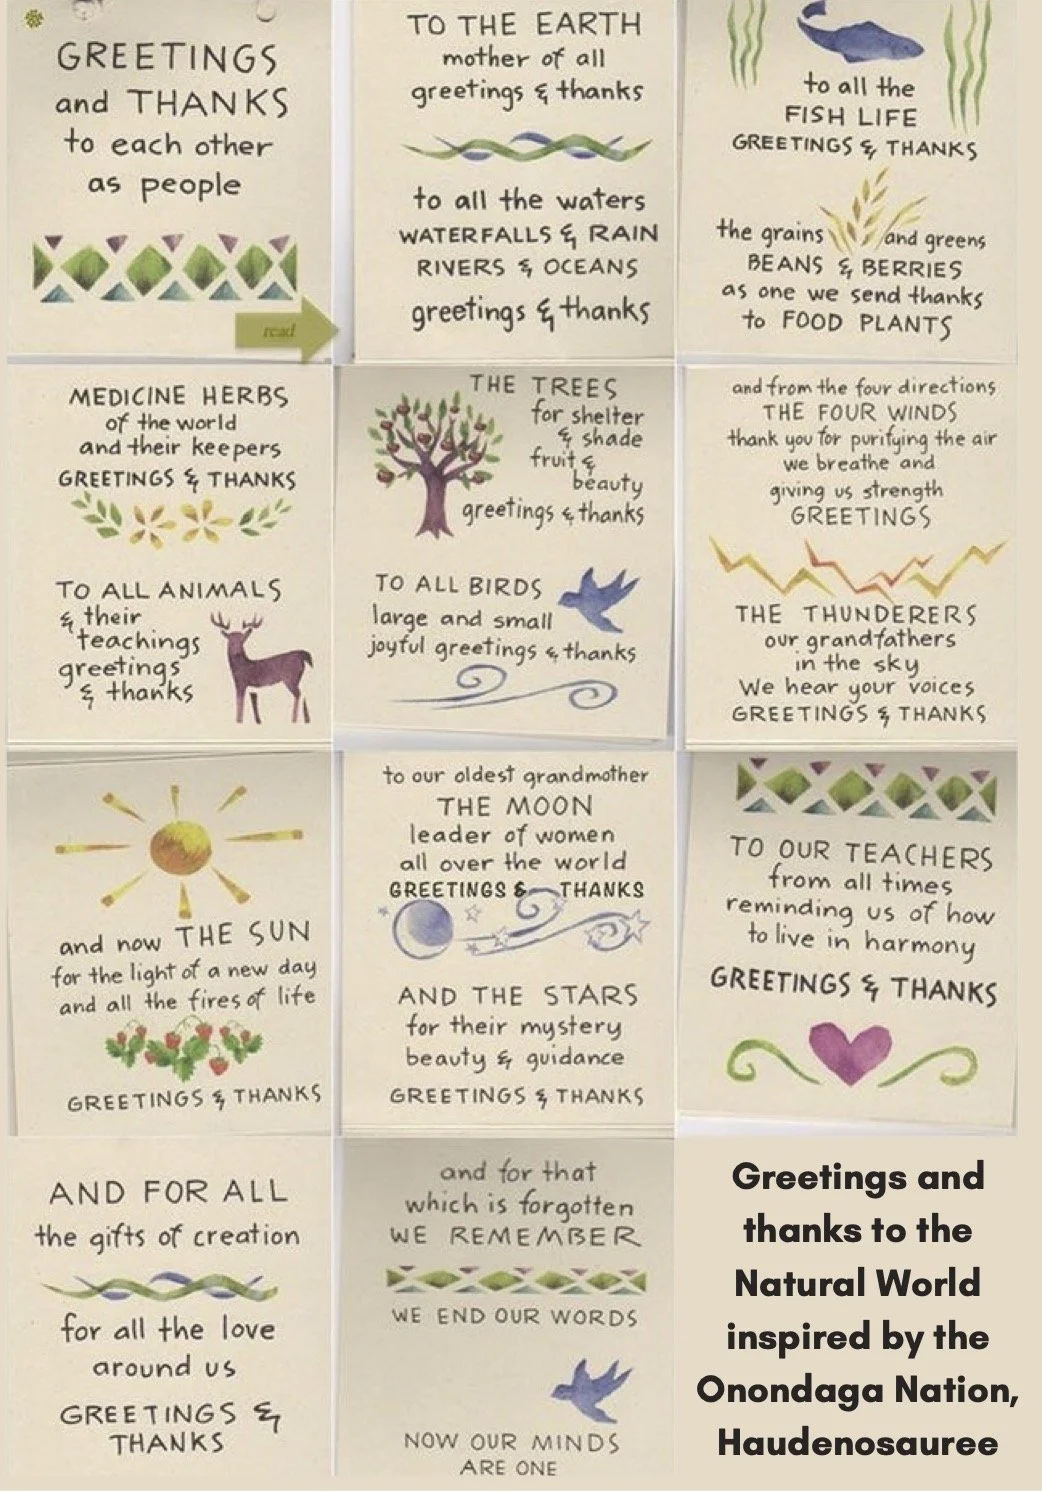 GREETINGS
and THANKS
to each other
as people
read
TO THE EARTH
mother of all
greetings & thanks
to all the waters
WATERFALLS & RAIN
RIVERS & OCEANS
greetings & thanks
to all the
FISH LIFE
GREETINGS & THANKS
the grains and greens
BEANS & BERRIES
as one we send thanks
to FOOD PLANTS
MEDICINE HERBS
of the world
and their keepers
GREETINGS & THANKS
TO ALL ANIMALS
& their
teachings
greetings
& thanks
THE TREES
for shelter
& shade
fruit &
beauty
greetings & thanks
TO ALL BIRDS
large and small
joyful greetings & thanks
and from the four directions
THE FOUR WINDS
thank you for purifying the air
we breathe and
giving us strength
GREETINGS
THE THUNDERERS
our grandfathers
in the sky
We hear your voices
GREETINGS & THANKS
and now THE SUN
for the light of a new day
and all the fires of life
GREETINGS & THANKS
to our oldest grandmother
THE MOON
leader of women
all over the world
GREETINGS & THANKS
AND THE STARS
for their mystery
beauty & guidance
GREETINGS & THANKS
TO OUR TEACHERS
from all times
reminding us of how
to live in harmony
GREETINGS & THANKS
AND FOR ALL
the gifts of creation
for all the love
around us
GREETINGS &
THANKS
and for that
which is forgotten
WE REMEMBER
WE END OUR WORDS
NOW OUR MINDS
ARE ONE
Greetings and
thanks to the
Natural World
inspired by the
Onondaga Nation,
Haudenosauree